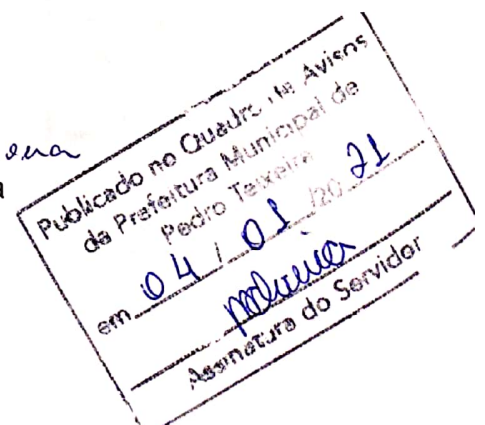 Publicado no Quadro de Avisos
da Prefeitura Municipal de
Pedro Teixeira
em 04 / 01 /20 21
Assinatura do Servidor